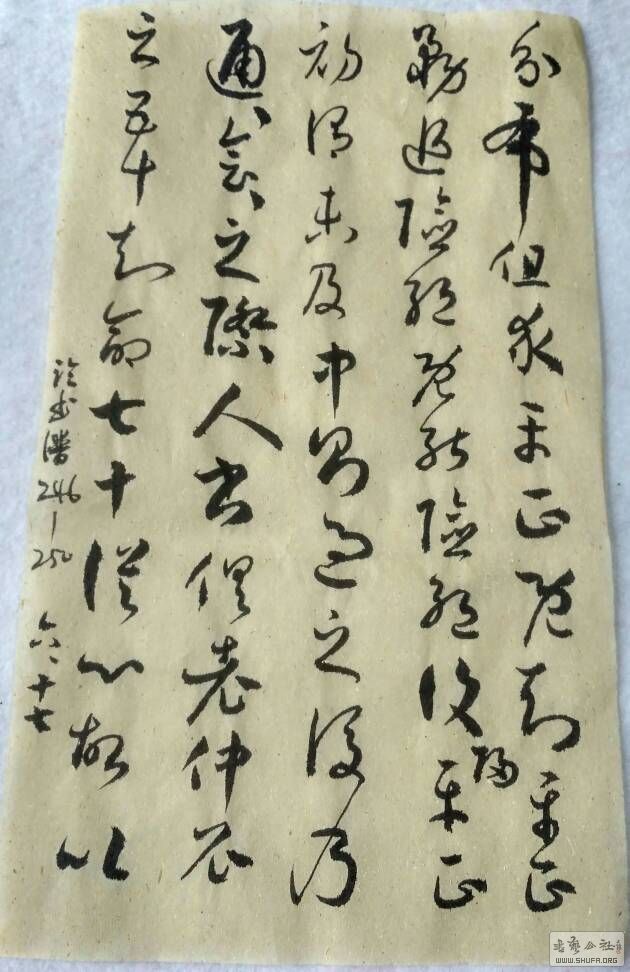 分布但求平正既知平正
務追險絕既能險絕復歸平正
初謂未及中則過之後乃
通〻會〻之際人書俱老仲尼
云五十知命七十從心故以
臨書譜246-250
六、十七
書藝公社
WWW.SHUFA.ORG